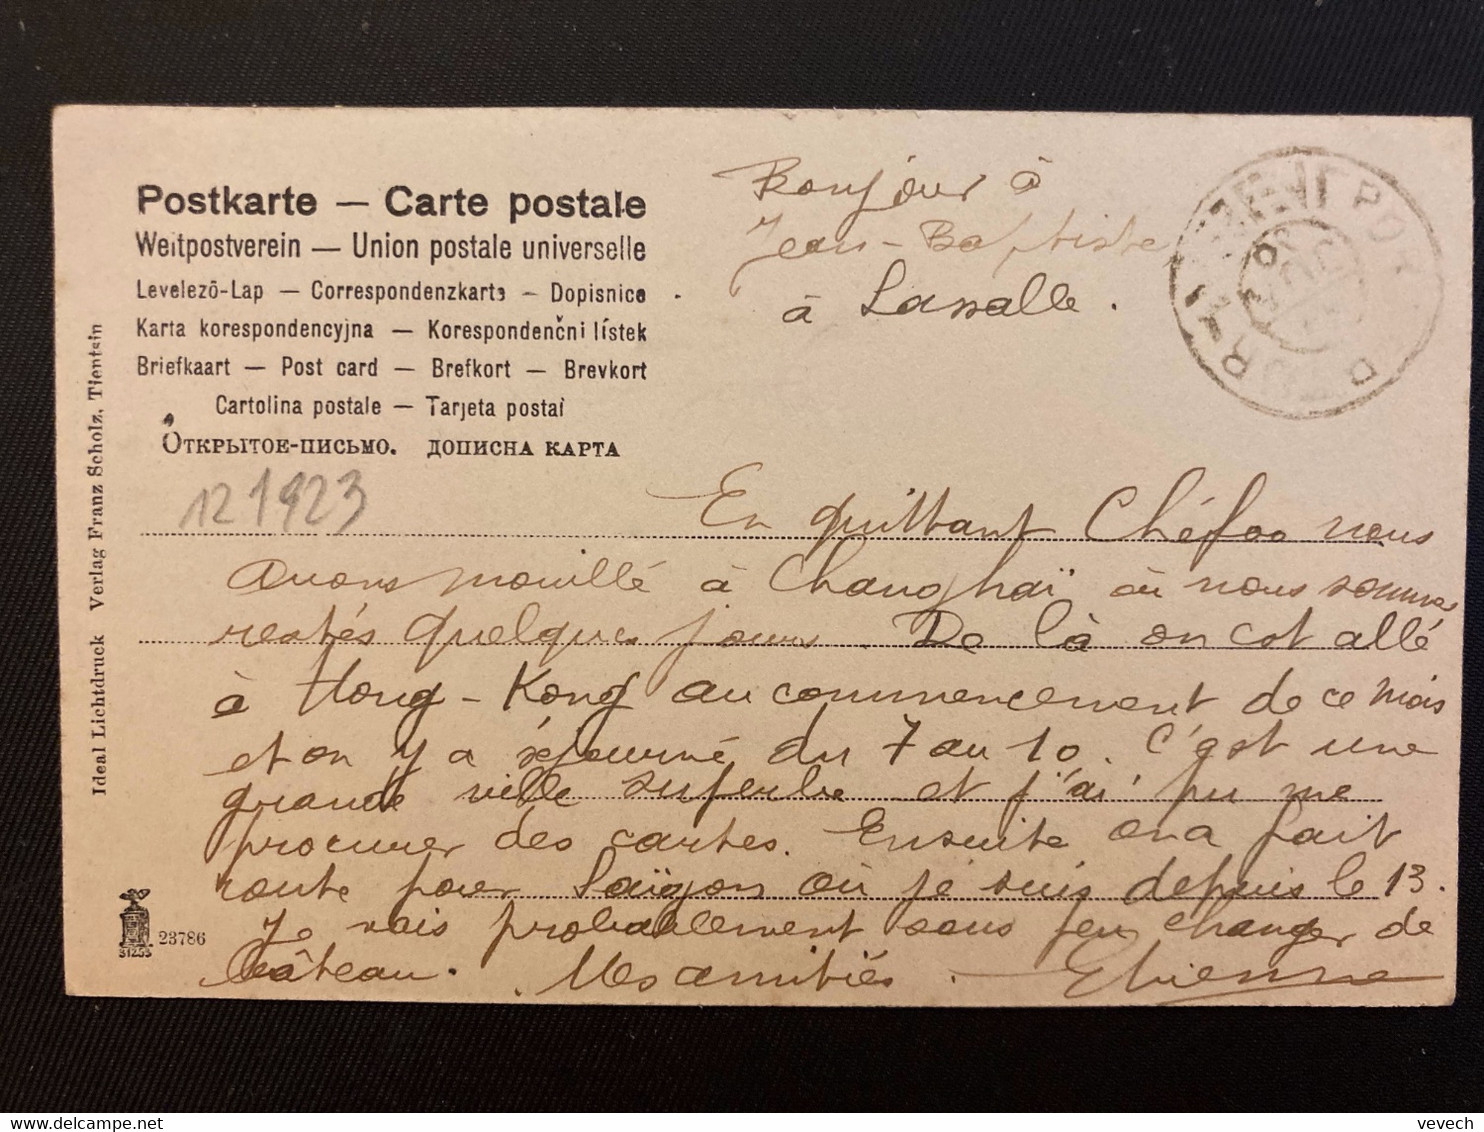 Postkarte — Carte postale
Weltpostverein — Union postale universelle
Levelező-Lap — Correspondenzkarte — Dopisnice
Karta korespondencyjna — Korespondenční lístek
Briefkaart — Post card — Brefkort — Brevkort
Cartolina postale — Tarjeta postal
Открытое-письмо. дописна карта
Ideal Lichtdruck Verlag Franz Scholz, Tientsin
12 1923
Bonjour à
Jean-Baptiste
à Lassalle.
En quittant Chéfoo nous
avons mouillé à Changhaï où nous sommes
restés quelques jours. De là on est allé
à Hong-Kong au commencement de ce mois
et on y a séjourné du 7 au 10. C'est une
grande ville superbe et j'ai pu me
procurer des cartes. Ensuite on a fait
route pour Saïgon où je suis depuis le 13.
Je vais probablement sous peu changer de
bâteau. Mes amitiés. Etienne
31255
23786
vevech